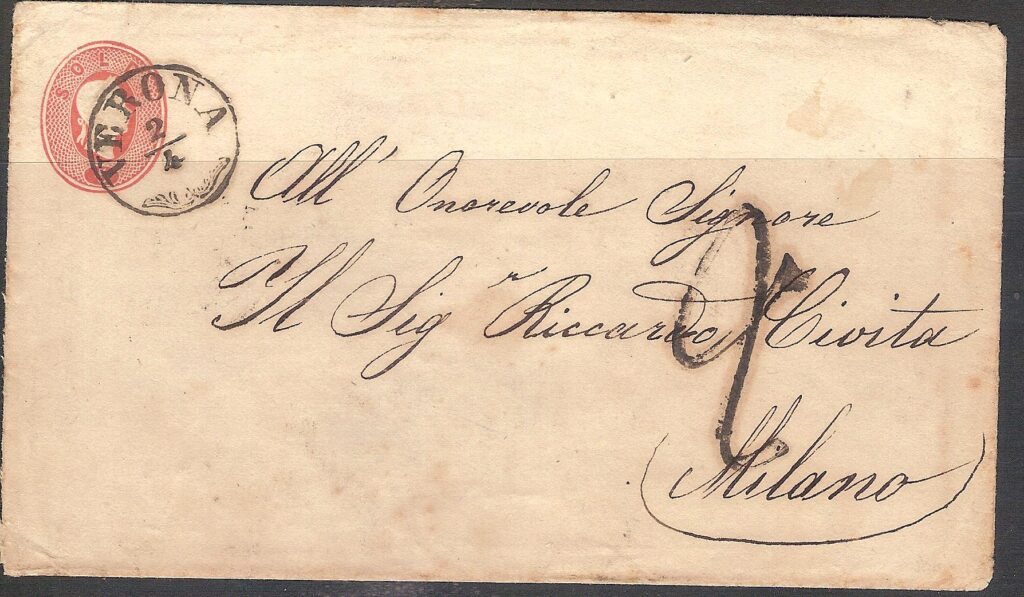 SOL
VERONA
2/4
All' Onorevole Signore
Il Sigr Riccardo Civita
2
Milano